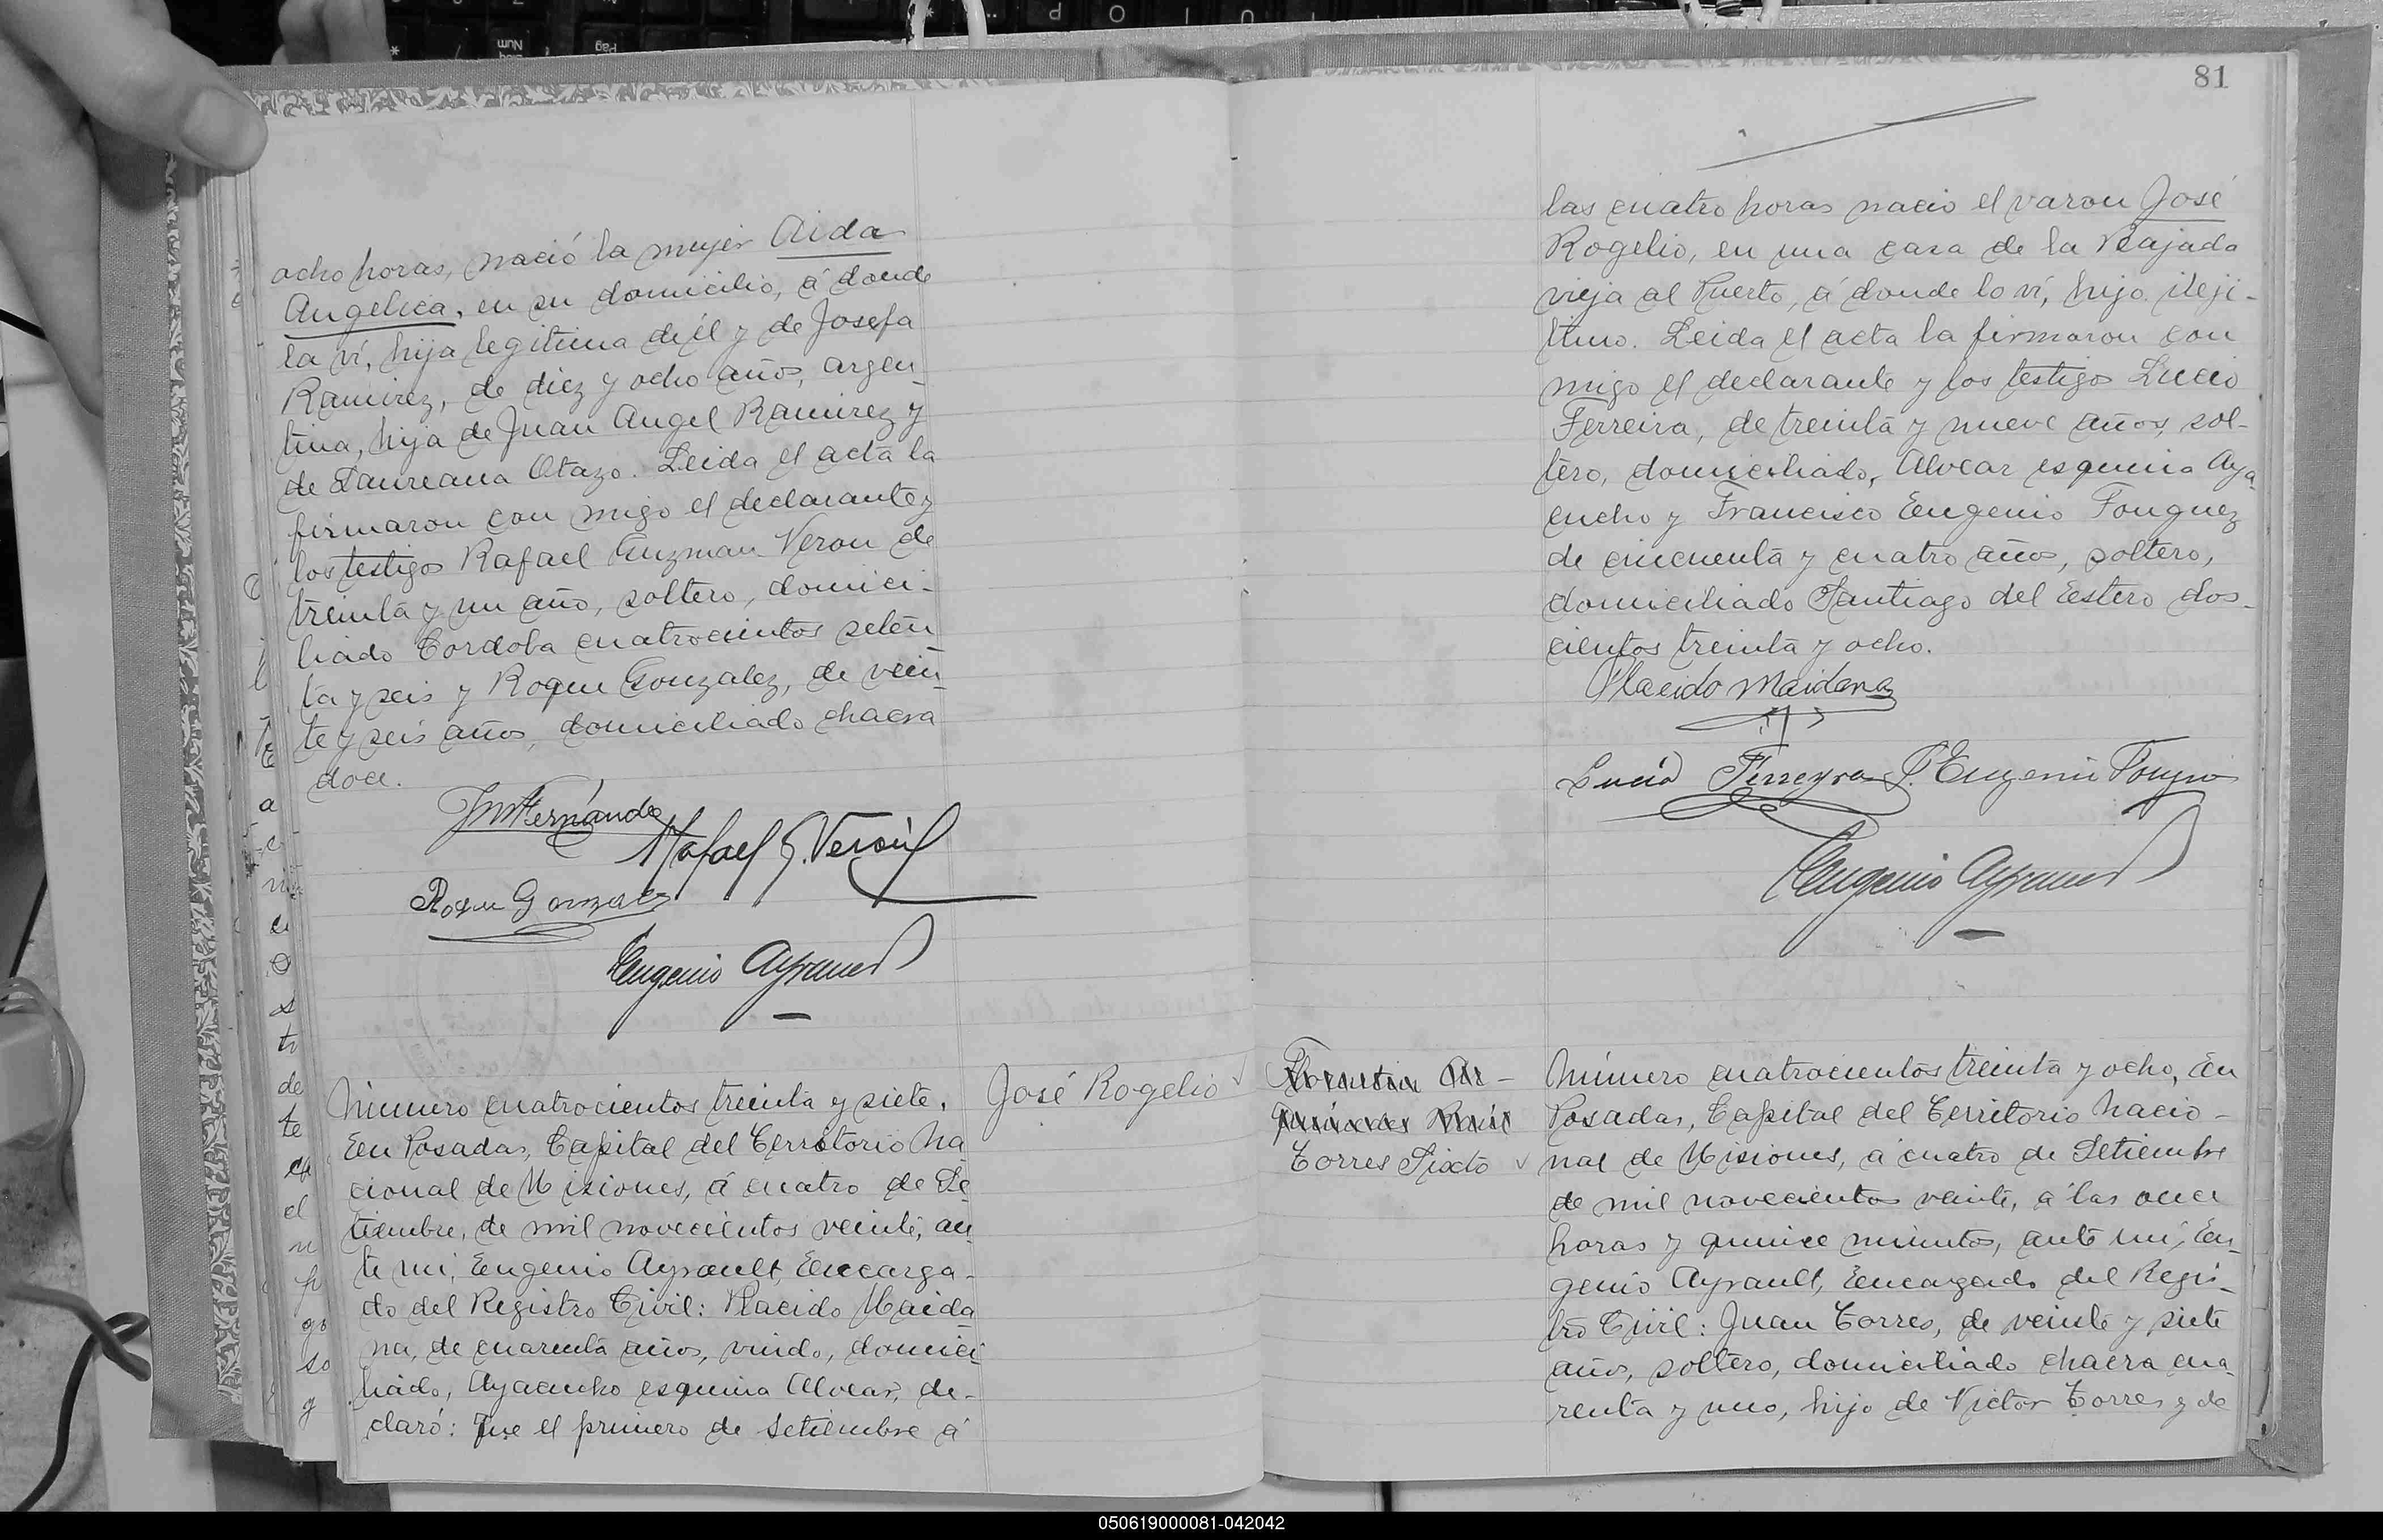 ocho horas, nació la mujer Aida
Angelica, en su domicilio, á donde
la ví, hija legitima de él y de Josefa
Ramirez, de diez y ocho años, argen-
tina, hija de Juan Angel Ramirez y
de Laureana Otazo. Leida el acta la
firmaron con migo el declarante y
los testigos Rafael Guzman Veron de
treinta y un año, soltero, domici-
liado Cordoba cuatrocientos seten
ta y seis y Roque Gonzalez, de vein-
te y seis años, domiciliado chacra
doce.
Rafael G. Verón
Roque Gonzalez
Eugenio Ayrault
Número cuatrocientos treinta y siete.
En Posadas, Capital del Territorio Na
cional de Misiones, á cuatro de Se
tiembre, de mil novecientos veinte, an
te mi, Eugenio Ayrault, Encarga-
do del Registro Civil: Placido Maida
na, de cuarenta años, viudo, domici
liado, Ayacucho esquina Alvear, de-
claró: Que el primero de Setiembre á
José Rogelio
81
las cuatro horas nacio el varon José
Rogelio, en una casa de la Bajada
vieja al Puerto, á donde lo ví, hijo ileji-
timo. Leida el acta la firmaron con
migo el declarante y los testigos Lucio
Ferreira, de treinta y nueve años, sol-
tero, domiciliado, Alvear esquina Aya
cucho y Francisco Eugenio Fouquez
de cincuenta y cuatro años, soltero,
domiciliado Santiago del Estero dos-
cientos treinta y ocho.
Placido Maidana
Lucio Ferreyra F. Eugenio
Eugenio Ayrault
Torres Sixto
Número cuatrocientos treinta y ocho, En
Posadas, Capital del Territorio Nacio-
nal de Misiones, á cuatro de Setiembre
de mil novecientos veinte, á las once
horas y quince minutos, ante mí, Eu-
genio Ayrault, Encargado del Regis-
tro Civil: Juan Torres, de veinte y siete
años, soltero, domiciliado chacra cua-
renta y uno, hijo de Victor Torres y de
050619000081-042042